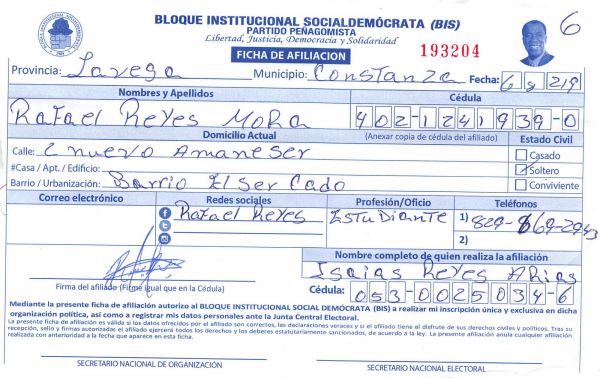 BLOQUE INSTITUCIONAL SOCIALDEMÓCRATA (BIS)
PARTIDO PEÑAGOMISTA
Libertad, Justicia, Democracia y Solidaridad
6
FICHA DE AFILIACION
193204
Provincia: Lavega Municipio: Constanza Fecha: 6 9 219
Nombres y Apellidos Cédula
Rafael Reyes Mora 402-1241939-0
Domicilio Actual (Anexar copia de cédula del afiliado) Estado Civil
Calle: C nuevo Amaneser Casado
#Casa / Apt. / Edificio: Soltero
Barrio / Urbanización: Barrio El Ser Cado Conviviente
Correo electrónico Redes sociales Profesión/Oficio Teléfonos
Rafael Reyes Estudiante 1) 829-869-2943
2)
Nombre completo de quien realiza la afiliación
Isaias Reyes Arias
Firma del afiliado (Firme igual que en la Cédula) Cédula: 053-0025034-6
Mediante la presente ficha de afiliación autorizo al BLOQUE INSTITUCIONAL SOCIAL DEMÓCRATA (BIS) a realizar mi inscripción única y exclusiva en dicha
organización política, así como a registrar mis datos personales ante la Junta Central Electoral.
La presente ficha de afiliación es válida si los datos ofrecidos por el afiliado son correctos, las declaraciones veraces y si el afiliado tiene el disfrute de sus derechos civiles y políticos. Tras su
recepción, sello y firmas autorizadas el afiliado ejercerá todos los derechos y los deberes estatutariamente sancionados, de acuerdo a la ley. La presente afiliación anula cualquier afiliación
realizada con anterioridad a la fecha que aparece en esta ficha.
SECRETARIO NACIONAL DE ORGANIZACIÓN SECRETARIO NACIONAL ELECTORAL